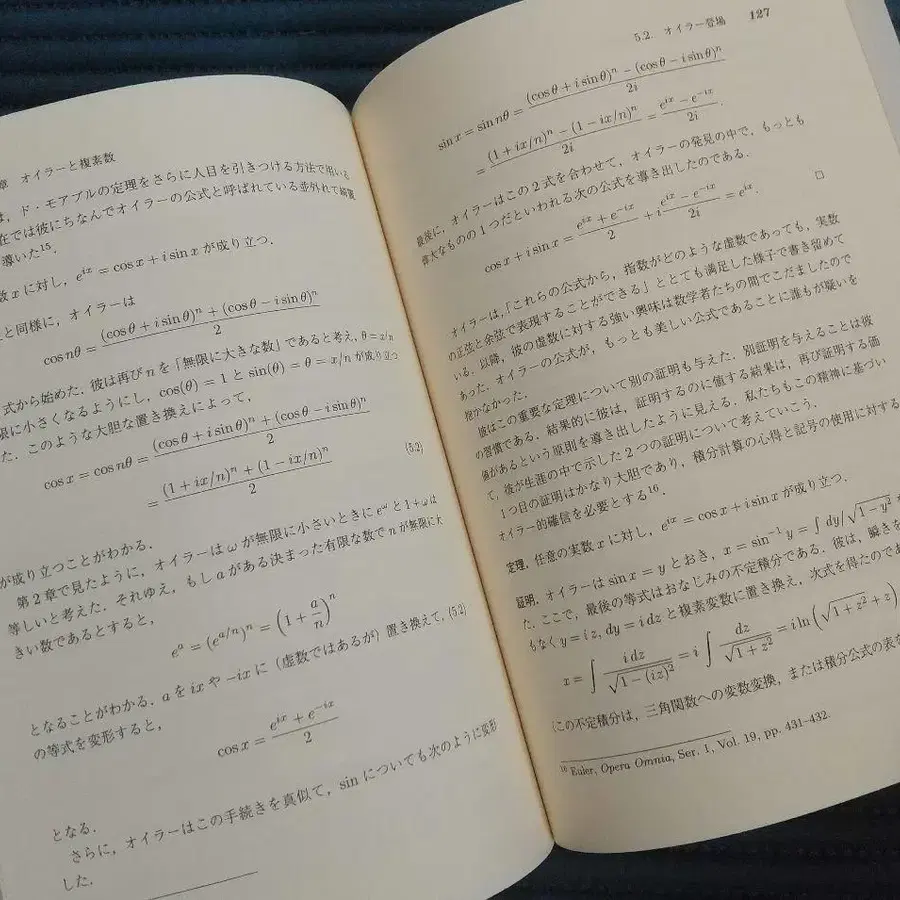 章 オイラーと複素数
は，ド・モアブルの定理をさらに人目を引きつける方法で用いる
在では彼にちなんでオイラーの公式と呼ばれている並外れて綺麗
導いた¹⁵．
数 x に対し，e^{ix} = cos x + i sin x が成り立つ．
と同様に，オイラーは
cos nθ = \frac{(cos θ + i sin θ)^n + (cos θ − i sin θ)^n}{2}
式から始めた．彼は再び n を「無限に大きな数」であると考え，θ = x/n
限に小さくなるようにし，cos(θ) = 1 と sin(θ) = θ = x/n が成り立つ
た．このような大胆な置き換えによって，
cos x = cos nθ = \frac{(cos θ + i sin θ)^n + (cos θ − i sin θ)^n}{2}
= \frac{(1 + ix/n)^n + (1 − ix/n)^n}{2} (5.2)
が成り立つことがわかる．
第 2 章で見たように，オイラーは ω が無限に小さいときに e^ω と 1 + ω は
等しいと考えた．それゆえ，もし a がある決まった有限な数で n が無限に大
きい数であるとすると，
e^a = (e^{a/n})^n = (1 + \frac{a}{n})^n
となることがわかる．a を ix や −ix に（虚数ではあるが）置き換えて，(5.2)
の等式を変形すると，
cos x = \frac{e^{ix} + e^{−ix}}{2}
となる．
さらに，オイラーはこの手続きを真似て，sin についても次のように変形
した．
5.2. オイラー登場 127
sin x = sin nθ = \frac{(cos θ + i sin θ)^n − (cos θ − i sin θ)^n}{2i}
= \frac{(1 + ix/n)^n − (1 − ix/n)^n}{2i} = \frac{e^{ix} − e^{−ix}}{2i}.
最後に，オイラーはこの 2 式を合わせて，オイラーの発見の中で，もっとも
偉大なものの 1 つだといわれる次の公式を導き出したのである．
cos x + i sin x = \frac{e^{ix} + e^{−ix}}{2} + i \frac{e^{ix} − e^{−ix}}{2i} = e^{ix}. □
オイラーは，「これらの公式から，指数がどのような虚数であっても，実数
の正弦と余弦で表現することができる」ととても満足した様子で書き留めて
いる．以降，彼の虚数に対する強い興味は数学者たちの間でこだましたので
あった．オイラーの公式が，もっとも美しい公式であることに誰もが疑いを
抱かなかった．
彼はこの重要な定理について別の証明も与えた．別証明を与えることは彼
の習慣である．結果的に彼は，証明するのに値する結果は，再び証明する価
値があるという原則を導き出したように見える．私たちもこの精神に基づい
て，彼が生涯の中で示した 2 つの証明について考えていこう．
1 つ目の証明はかなり大胆であり，積分計算の心得と記号の使用に対する
オイラー的確信を必要とする¹⁶．
定理．任意の実数 x に対し，e^{ix} = cos x + i sin x が成り立つ．
証明．オイラーは sin x = y とおき，x = sin^{−1} y = ∫ dy/√(1 − y²)
た．ここで，最後の等式はおなじみの不定積分である．彼は，瞬きを
もなく y = iz, dy = i dz と複素変数に置き換え，次式を得たのであ
x = ∫ \frac{i dz}{√(1 − (iz)²)} = i ∫ \frac{dz}{√(1 + z²)} = i ln(√(1 + z²) + z)
（この不定積分は，三角関数への変数変換，または積分公式の表を
¹⁶ Euler, Opera Omnia, Ser. I, Vol. 19, pp. 431–432.